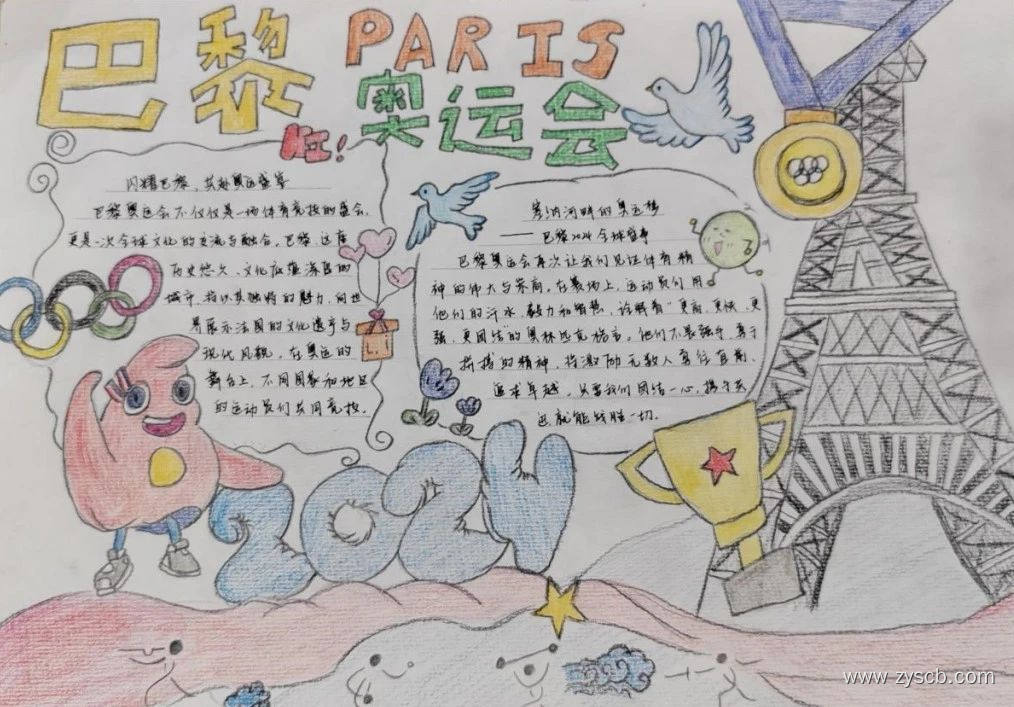 巴黎 PARIS
奥运会
闪耀巴黎，共赴奥运盛宴
巴黎奥运会不仅仅是一场体育竞技的盛会，
更是一次全球文化的交流与融合。巴黎，这座
历史悠久、文化底蕴深厚的
城市，将以其独特的魅力，向世
界展示法国的文化遗产与
现代风貌。在奥运的
舞台上，不同国家和地区
的运动员们共同竞技。
塞纳河畔的奥运梦
——巴黎2024全球盛事
巴黎奥运会再次让我们见证体育精
神的伟大与崇高。在赛场上，运动员们用
他们的汗水、毅力和智慧，诠释着“更高、更快、更
强、更团结”的奥林匹克格言。他们不畏强手、勇于
拼搏的精神，将激励无数人勇往直前、
追求卓越。只要我们团结一心，携手共
进就能战胜一切。
2024
www.zyscb.com